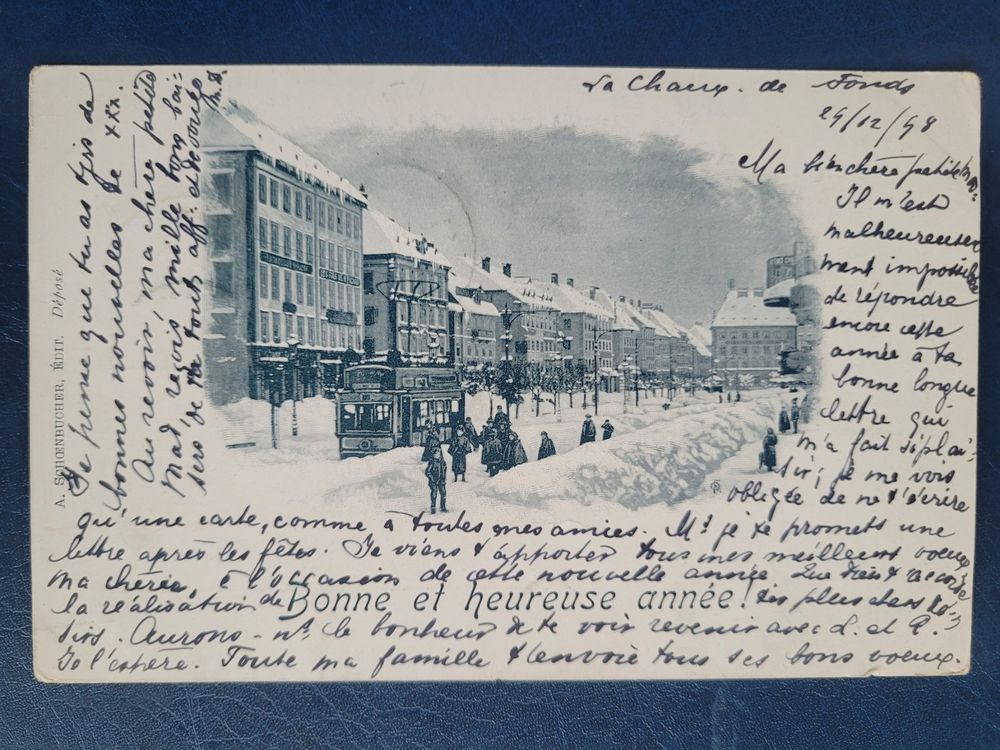 La Chaux. de Fonds
29/12/98
Ma bien chère petite
Il m'est
malheureuse
ment impossible
de répondre
encore cette
année à ta
bonne longue
lettre qui
m'a fait si plai-
sir; je me vois
obligée de ne t'écrire
qu'une carte, comme à toutes mes amies. Mais je te promets une
lettre après les fêtes. Je viens t'apporter tous mes meilleurs voeux
ma chérie, à l'occasion de cette nouvelle année. Que Dieu t'accorde
la réalisation de tes plus chers dé-
Bonne et heureuse année!
sirs. Aurons-ns. le bonheur de te voir revenir avec L. et P.
Je l'espère. Toute ma famille t'envoie tous ses bons voeux.
Je pense que tu as
bonnes nouvelles de
Au revoir, ma chère petite
Mad. reçois mille bons bai-
sers de ta toute aff.
A. SCHŒNBUCHER, ÉDIT. Déposé